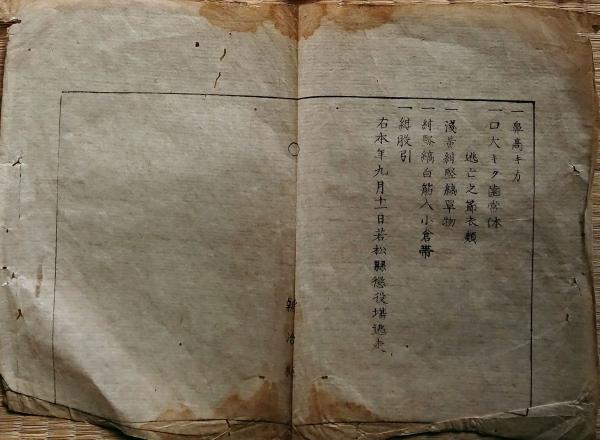 一鼻高キ方
一口大キク歯常体
逃亡之節衣類
一淺黄紺竪縞單物
一紺竪縞白筋入小倉帯
一紺股引
右本年九月十一日若松縣懲役場逃走
新治縣